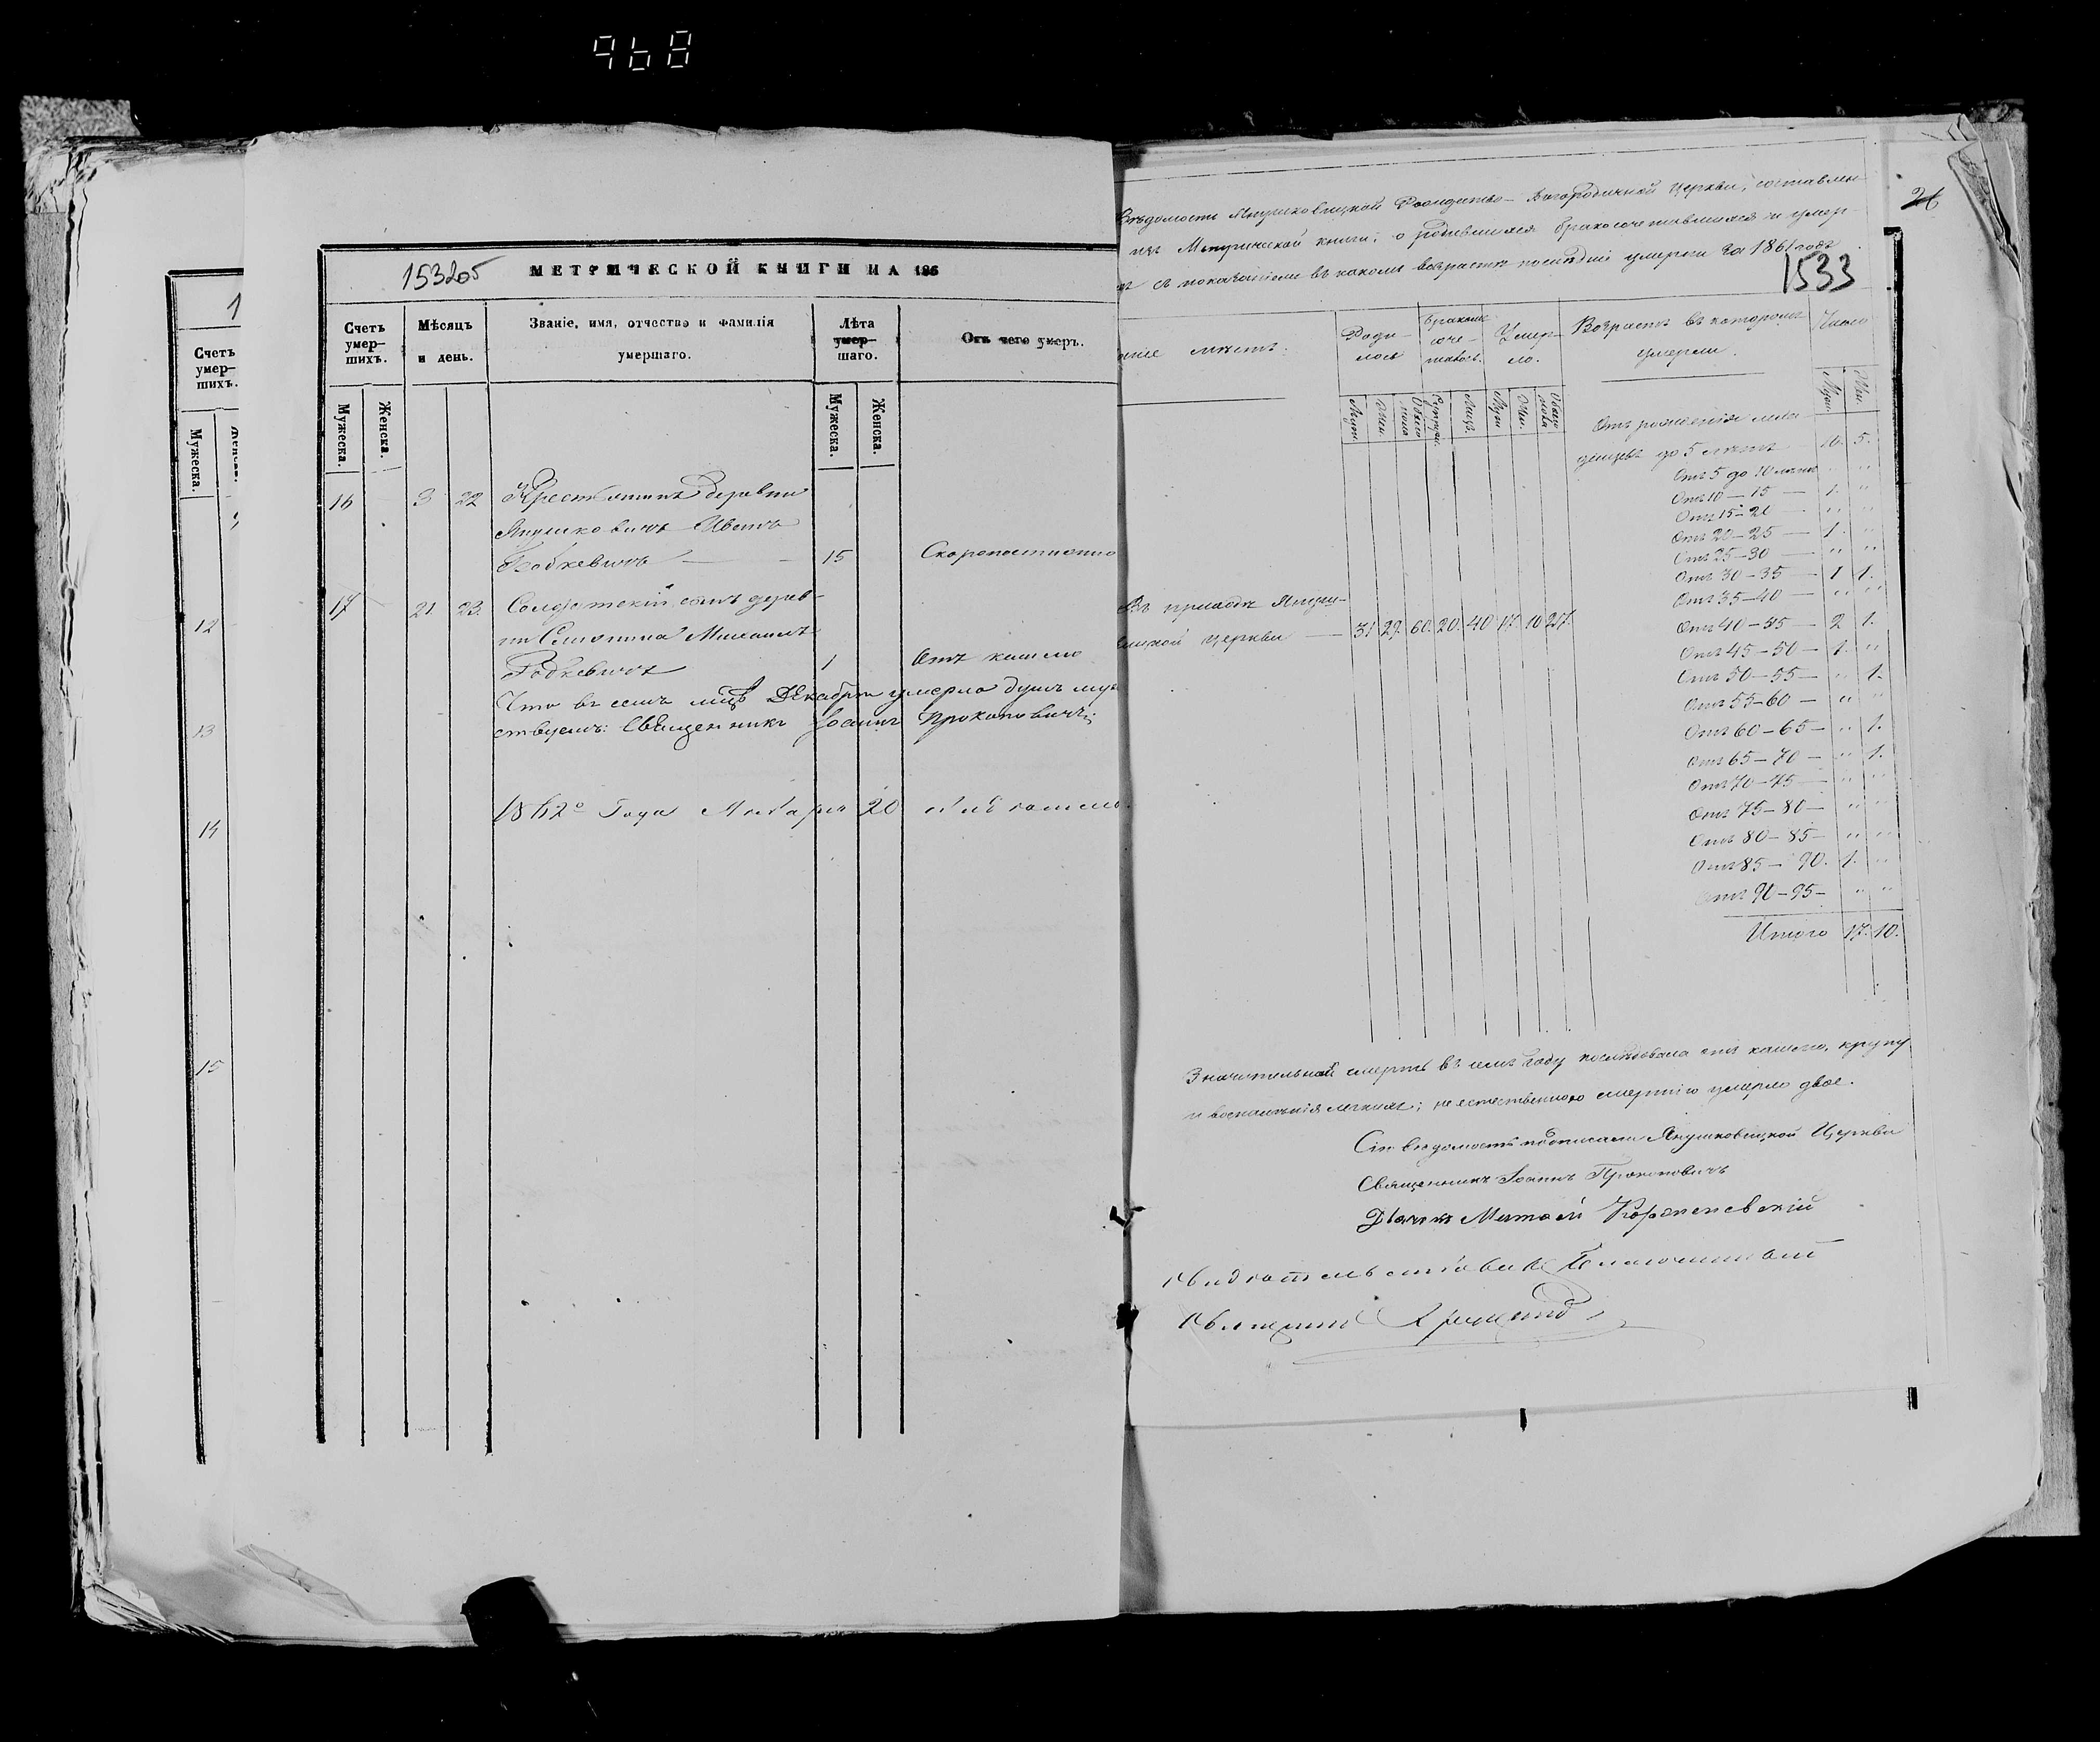 968
153205 МЕТРИЧЕСКОЙ КНИГИ НА 186
Счетъ умер-шихъ.
Мѣсяцъ и день.
Званіе, имя, отчество и фамилія умершаго.
Лѣта умер-шаго.
Отъ чего умеръ.
Мужеска.
Женска.
Мужеска.
Женска.
16 3 22 Крестьянинъ деревни
Янушковичъ Иванъ
15 Скоропостижно
17 21 23 Солдатскій сынъ дерев-
ни Михаилъ
Радкевичъ 1 Отъ кашлю
Что въ семъ мцѣ Декабрѣ умерло душъ
ствуемъ: Священникъ Іоаннъ Прокоповичъ;
1862о Года Января 20
1
Счетъ
умер-
шихъ.
Мужеска.
12
13
14
15
26
Вѣдомость Янушковицкой Рождество-Богородичной Церкви, составлен-
изъ Метрической книги, о родившихся бракосочетавшихся и умер-
съ показаніемъ въ какомъ возрастѣ послѣдніе умерли за 1861 годъ
1533
мѣстъ.
Роди-
лось
Браком
соче-
талось.
Умер-
ло.
Возрастъ въ которомъ
умерли.
Число
Муж.
Жен.
Обоего
пола
Супруж.
Лицъ.
Муж.
Жен.
Обоего
пола
Муж.
Жен.
Отъ рожденія мла-
денцевъ до 5 лѣтъ 10. 5.
Отъ 5 до 10 лѣтъ " "
Отъ 10 — 15 — 1. "
Отъ 15 — 20 — " "
Отъ 20 — 25 — 1. "
Отъ 25 — 30 — " "
Отъ 30 — 35 — 1 1.
Отъ 35 — 40 — " "
Въ приходѣ Януш-
церкви — 31. 29. 60. 20. 40 17. 10 27.
Отъ 40 — 45 — 2 1.
Отъ 45 — 50 — 1. "
Отъ 50 — 55 — " 1.
Отъ 55 — 60 — " "
Отъ 60 — 65 — " 1.
Отъ 65 — 70 — " 1.
Отъ 70 — 75 — " "
Отъ 75 — 80 — " "
Отъ 80 — 85 — " "
Отъ 85 — 90. 1. "
Отъ 90 — 95 — " "
Итого 17. 10.
Значительная смерть въ семъ году послѣдовала отъ кашлю, крупу
и воспаленія легкихъ; неестественною смертію умерло двое.
Сію вѣдомость подписали Янушковицкой Церкви
Священникъ Іоаннъ Прокоповичъ
Дьячкъ Матѳей